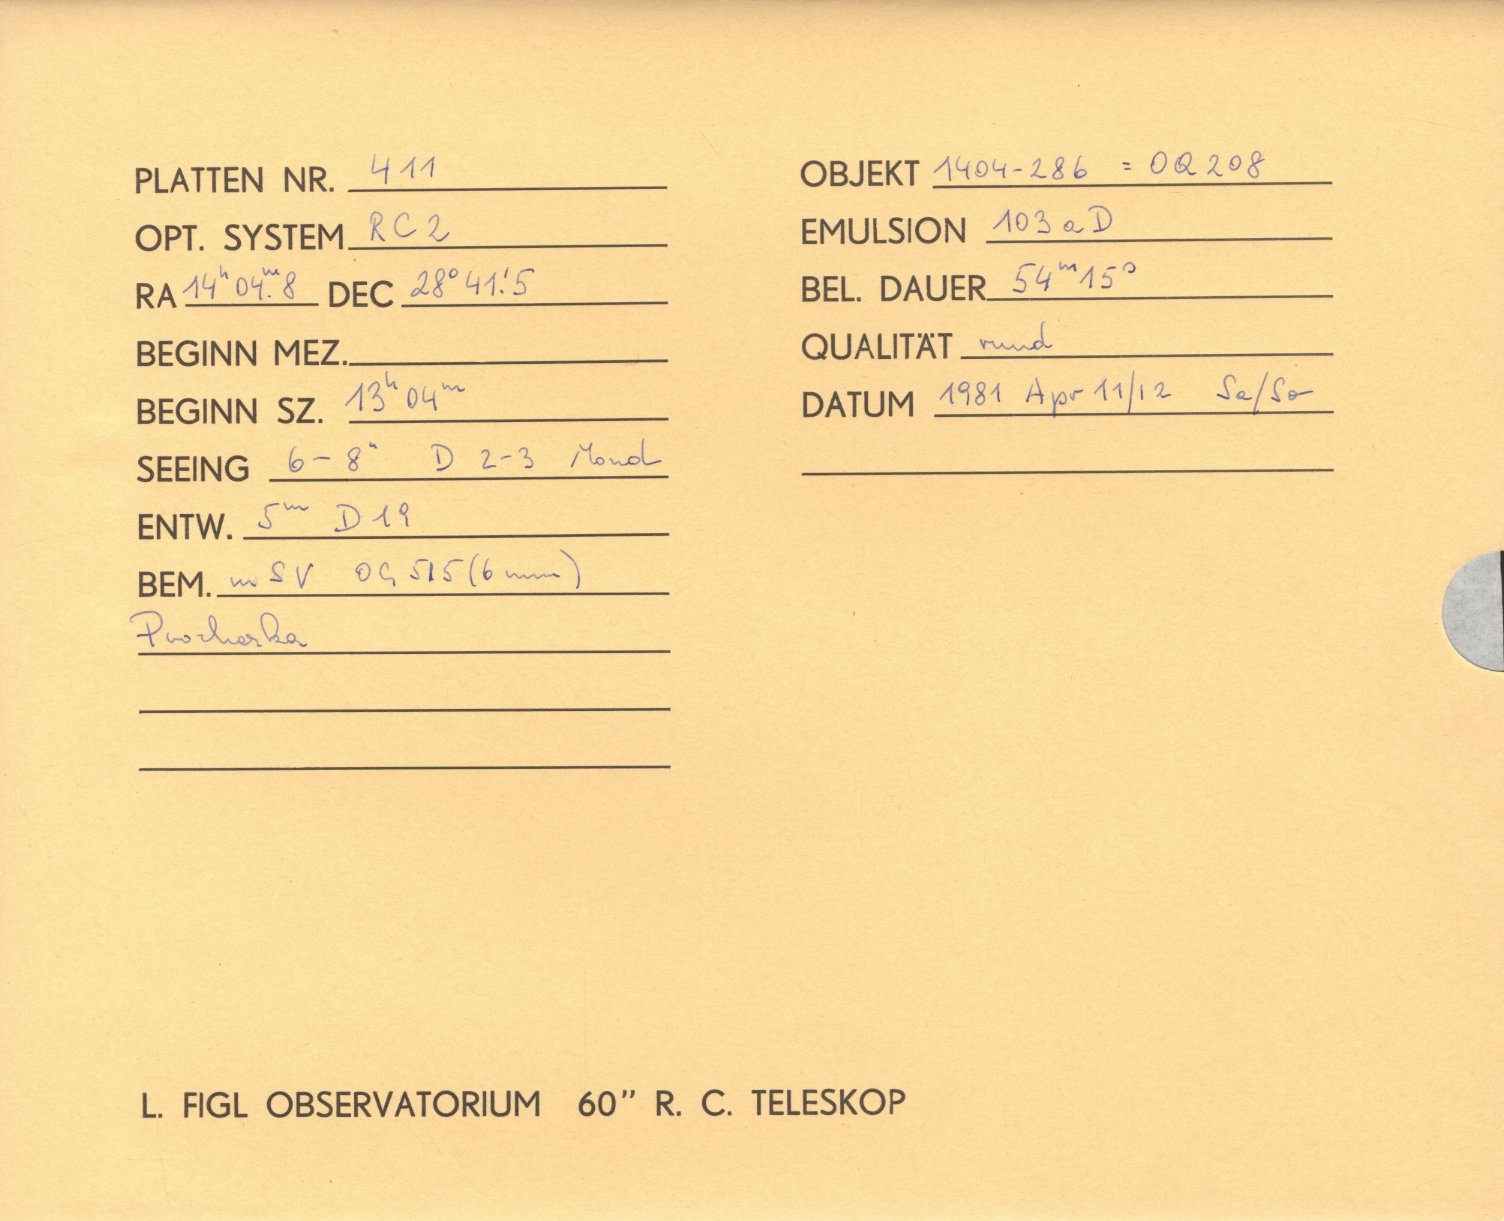 PLATTEN NR. 411
OPT. SYSTEM RC2
RA 14ʰ04ᵐ.8 DEC 28°41.'5
BEGINN MEZ.
BEGINN SZ. 13ʰ04ᵐ
SEEING 6-8" D 2-3 Mond
ENTW. 5ᵐ D19
BEM. mSV OG515(6mm)
Prochaska
OBJEKT 1404-286 = OQ208
EMULSION 103aD
BEL. DAUER 54ᵐ15ˢ
QUALITÄT rund
DATUM 1981 Apr 11/12 Sa/So
L. FIGL OBSERVATORIUM 60" R. C. TELESKOP